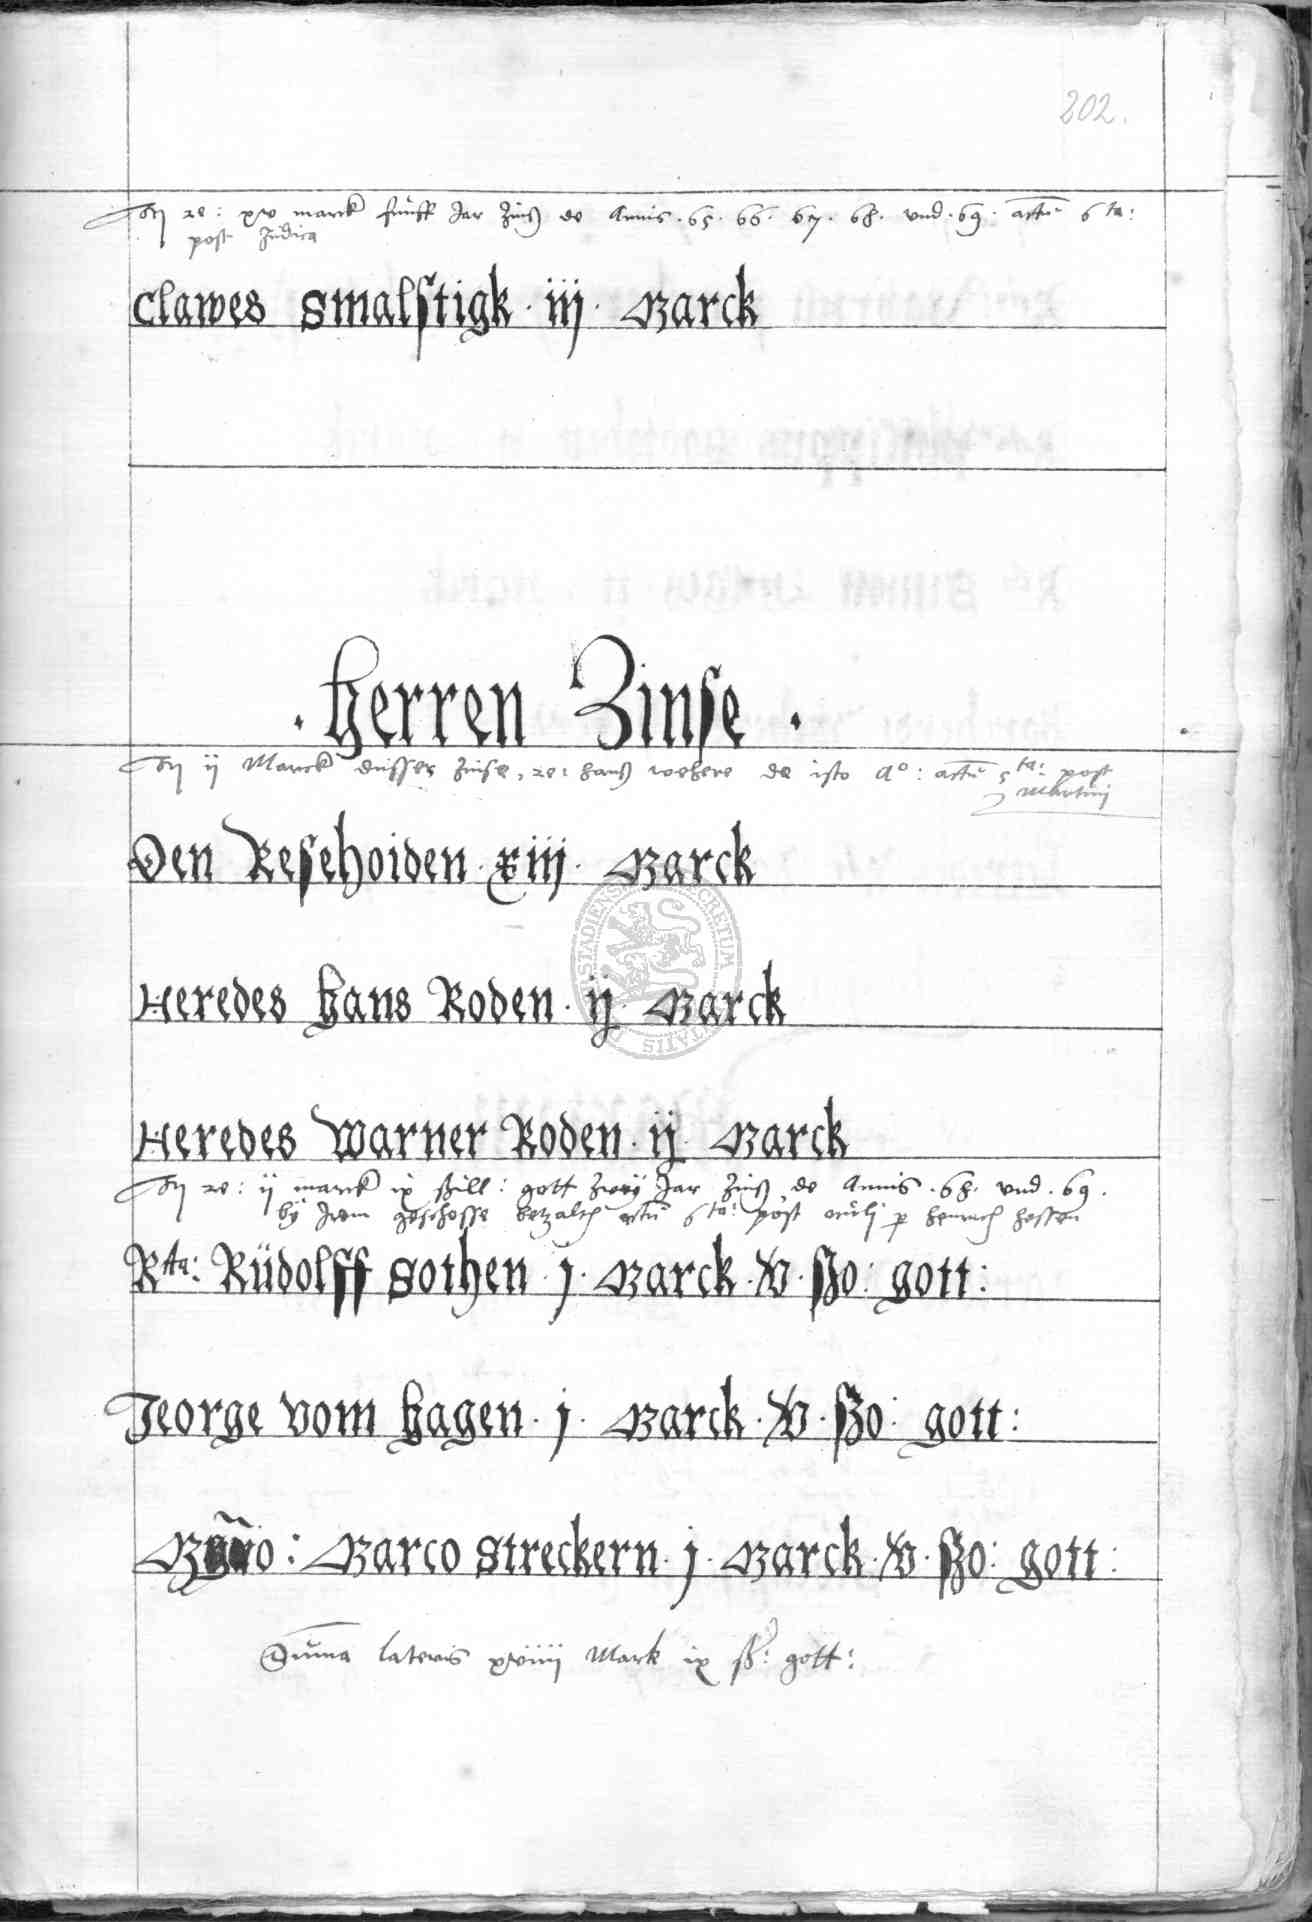 202.
re: xv marck funff Jar Zinß de Annis . 65 . 66 . 67 . 68 . vnd . 69 . actu 6ta:
post Judica
Clawes Smalstigk . iij . Marck
. Herren Zinse .
ij Marck dusser Zinse, re: Hanß wehere de isto Ao: actu 5ta: post
Martini
Den Resehoiden . xiij . Marck
Heredes Hans Roden . ij . Marck
STADIENS SECRETUM
Heredes Warner Roden . ij . Marck
re: ij marck ix ßill: gott Zwey Jar Zinß de Annis . 68 . vnd . 69 .
by Irem geschosse betzalth actu 6ta: post p henrich hessen
Rta: Rüdolff Sothen . j . Marck . v . ßo: gott:
Jeorge vom Hagen . j . Marck . v . ßo: gott:
Marco Streckern . j . Marck . v . ßo: gott:
Suma lateris xviiij Mark ix ß: gott: